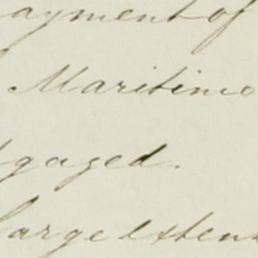 ayment of
Maritimo
gaged.
large extent